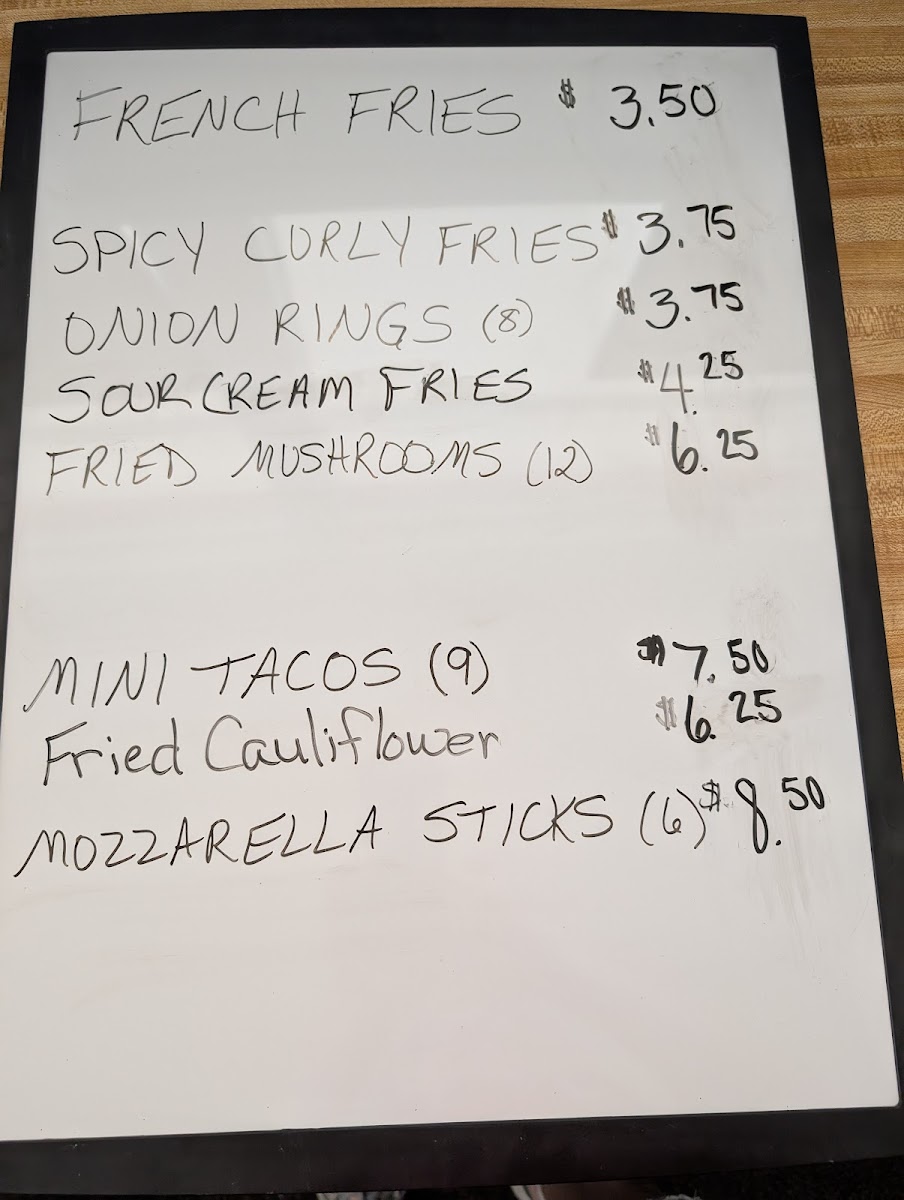 FRENCH FRIES $ 3.50
SPICY CURLY FRIES $ 3.75
ONION RINGS (8) $ 3.75
SOUR CREAM FRIES $ 4.25
FRIED MUSHROOMS (12) $ 6.25
MINI TACOS (9) $ 7.50
Fried Cauliflower $ 6.25
MOZZARELLA STICKS (6) $ 8.50